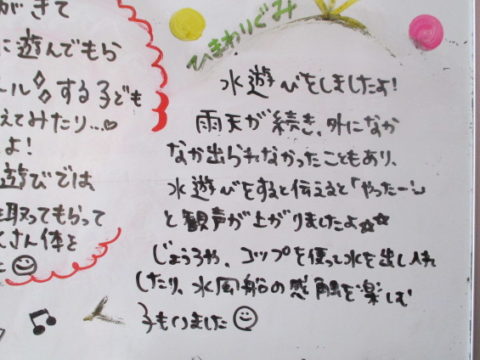 がきて
に遊んでもら
ール♢♢する子ども
えてみたり…♡
よ!
遊びでは
を取ってもらって
くさん体を
た☺
ひまわりぐみ
水遊びをしましたよ!
雨天が続き、外になか
なか出られなかったこともあり、
水遊びをすると伝えると「やったー」
と観声が上がりましたよ☆☆
じょうろや、コップを使って水を出し入れ
したり、水風船の感触を楽しむ
子もいました☺